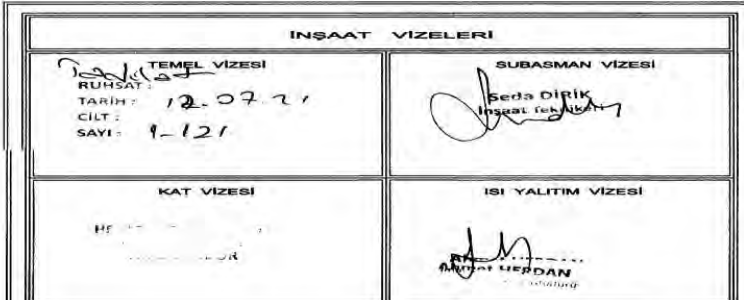 İNŞAAT VİZELERİ
TEMEL VİZESİ
Tadilat
RUHSAT :
TARİH : 12.07.21
CİLT :
SAYI : 9-121
SUBASMAN VİZESİ
Seda DİRİK
İnşaat Teknikeri
KAT VİZESİ
ISI YALITIM VİZESİ
HERDAN